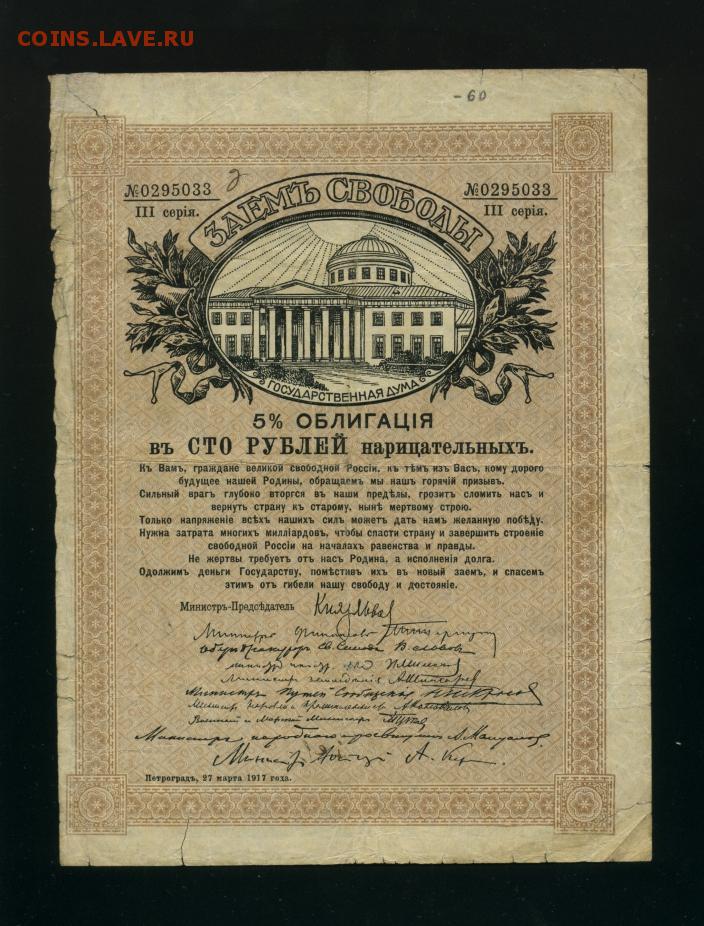 COINS.LAVE.RU
-60
№0295033
№0295033
III серія.
III серія.
ЗАЕМЪ СВОБОДЫ
ГОСУДАРСТВЕННАЯ ДУМА
5% ОБЛИГАЦІЯ
въ СТО РУБЛЕЙ нарицательныхъ.
Къ Вамъ, граждане великой свободной Россіи, къ тѣмъ изъ Васъ, кому дорого
будущее нашей Родины, обращаемъ мы нашъ горячій призывъ.
Сильный врагъ глубоко вторгся въ наши предѣлы, грозитъ сломить насъ и
вернуть страну къ старому, нынѣ мертвому строю.
Только напряженіе всѣхъ нашихъ силъ можетъ дать намъ желанную побѣду.
Нужна затрата многихъ милліардовъ, чтобы спасти страну и завершить строеніе
свободной Россіи на началахъ равенства и правды.
Не жертвы требуетъ отъ насъ Родина, а исполненія долга.
Одолжимъ деньги Государству, помѣстивъ ихъ въ новый заемъ, и спасемъ
этимъ отъ гибели нашу свободу и достояніе.
Министръ-Предсѣдатель Князь Львов
Министръ финансовъ
Оберъ-Прокуроръ Св. Синода В. Львовъ
Министръ земледѣлія А. Шингарев
Министръ Путей Сообщенія Н. Некрасов
Министръ торговли и промышленности А. Коновалов
Военный и Морской Министръ Гучков
Министръ народнаго просвѣщенія А. Мануйлов.
Министръ Юстиціи А. Кер
Петроградъ, 27 марта 1917 года.